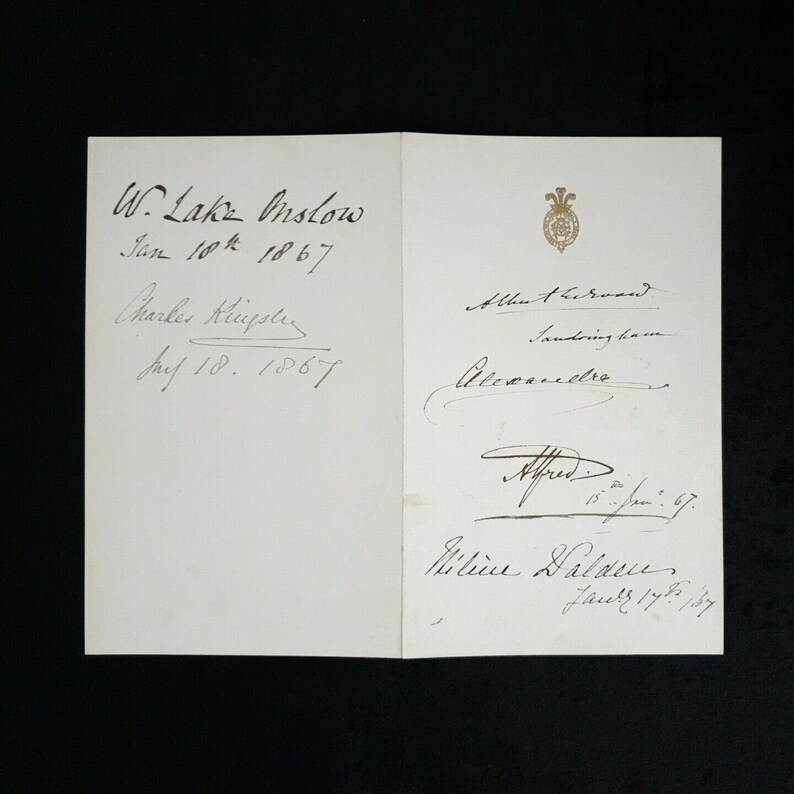 W. Lake Onslow
Jan 18th 1867
Charles Kingsley
Jany 18. 1867
Albert Edward
Sandringham
Alexandra
Alfred.
15th Jany. 67.
Walden
Jandy 17th 1867